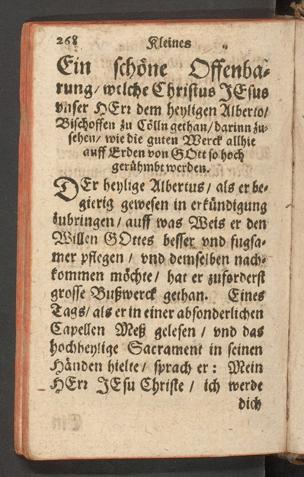 268 Kleines
Ein schöne Offenba-
rung/ welche Christus JEsus
vnser HErr dem heyligen Alberto/
Bischoffen zu Cölln gethan/ darinn zu-
sehen/ wie die guten Werck allhie
auff Erden von GOtt so hoch
gerühmbt werden.
DEr heylige Albertus/ als er be-
gierig gewesen in erkündigung
zubringen/ auff was Weis er den
Willen GOttes besser vnd fugsa-
mer pflegen/ vnd demselben nach-
kommen möchte/ hat er zuforderst
grosse Bußwerck gethan. Eines
Tags/ als er in einer absonderlichen
Capellen Meß gelesen/ vnd das
hochheylige Sacrament in seinen
Händen hielte/ sprach er: Mein
HErr JEsu Christe/ ich werde
dich